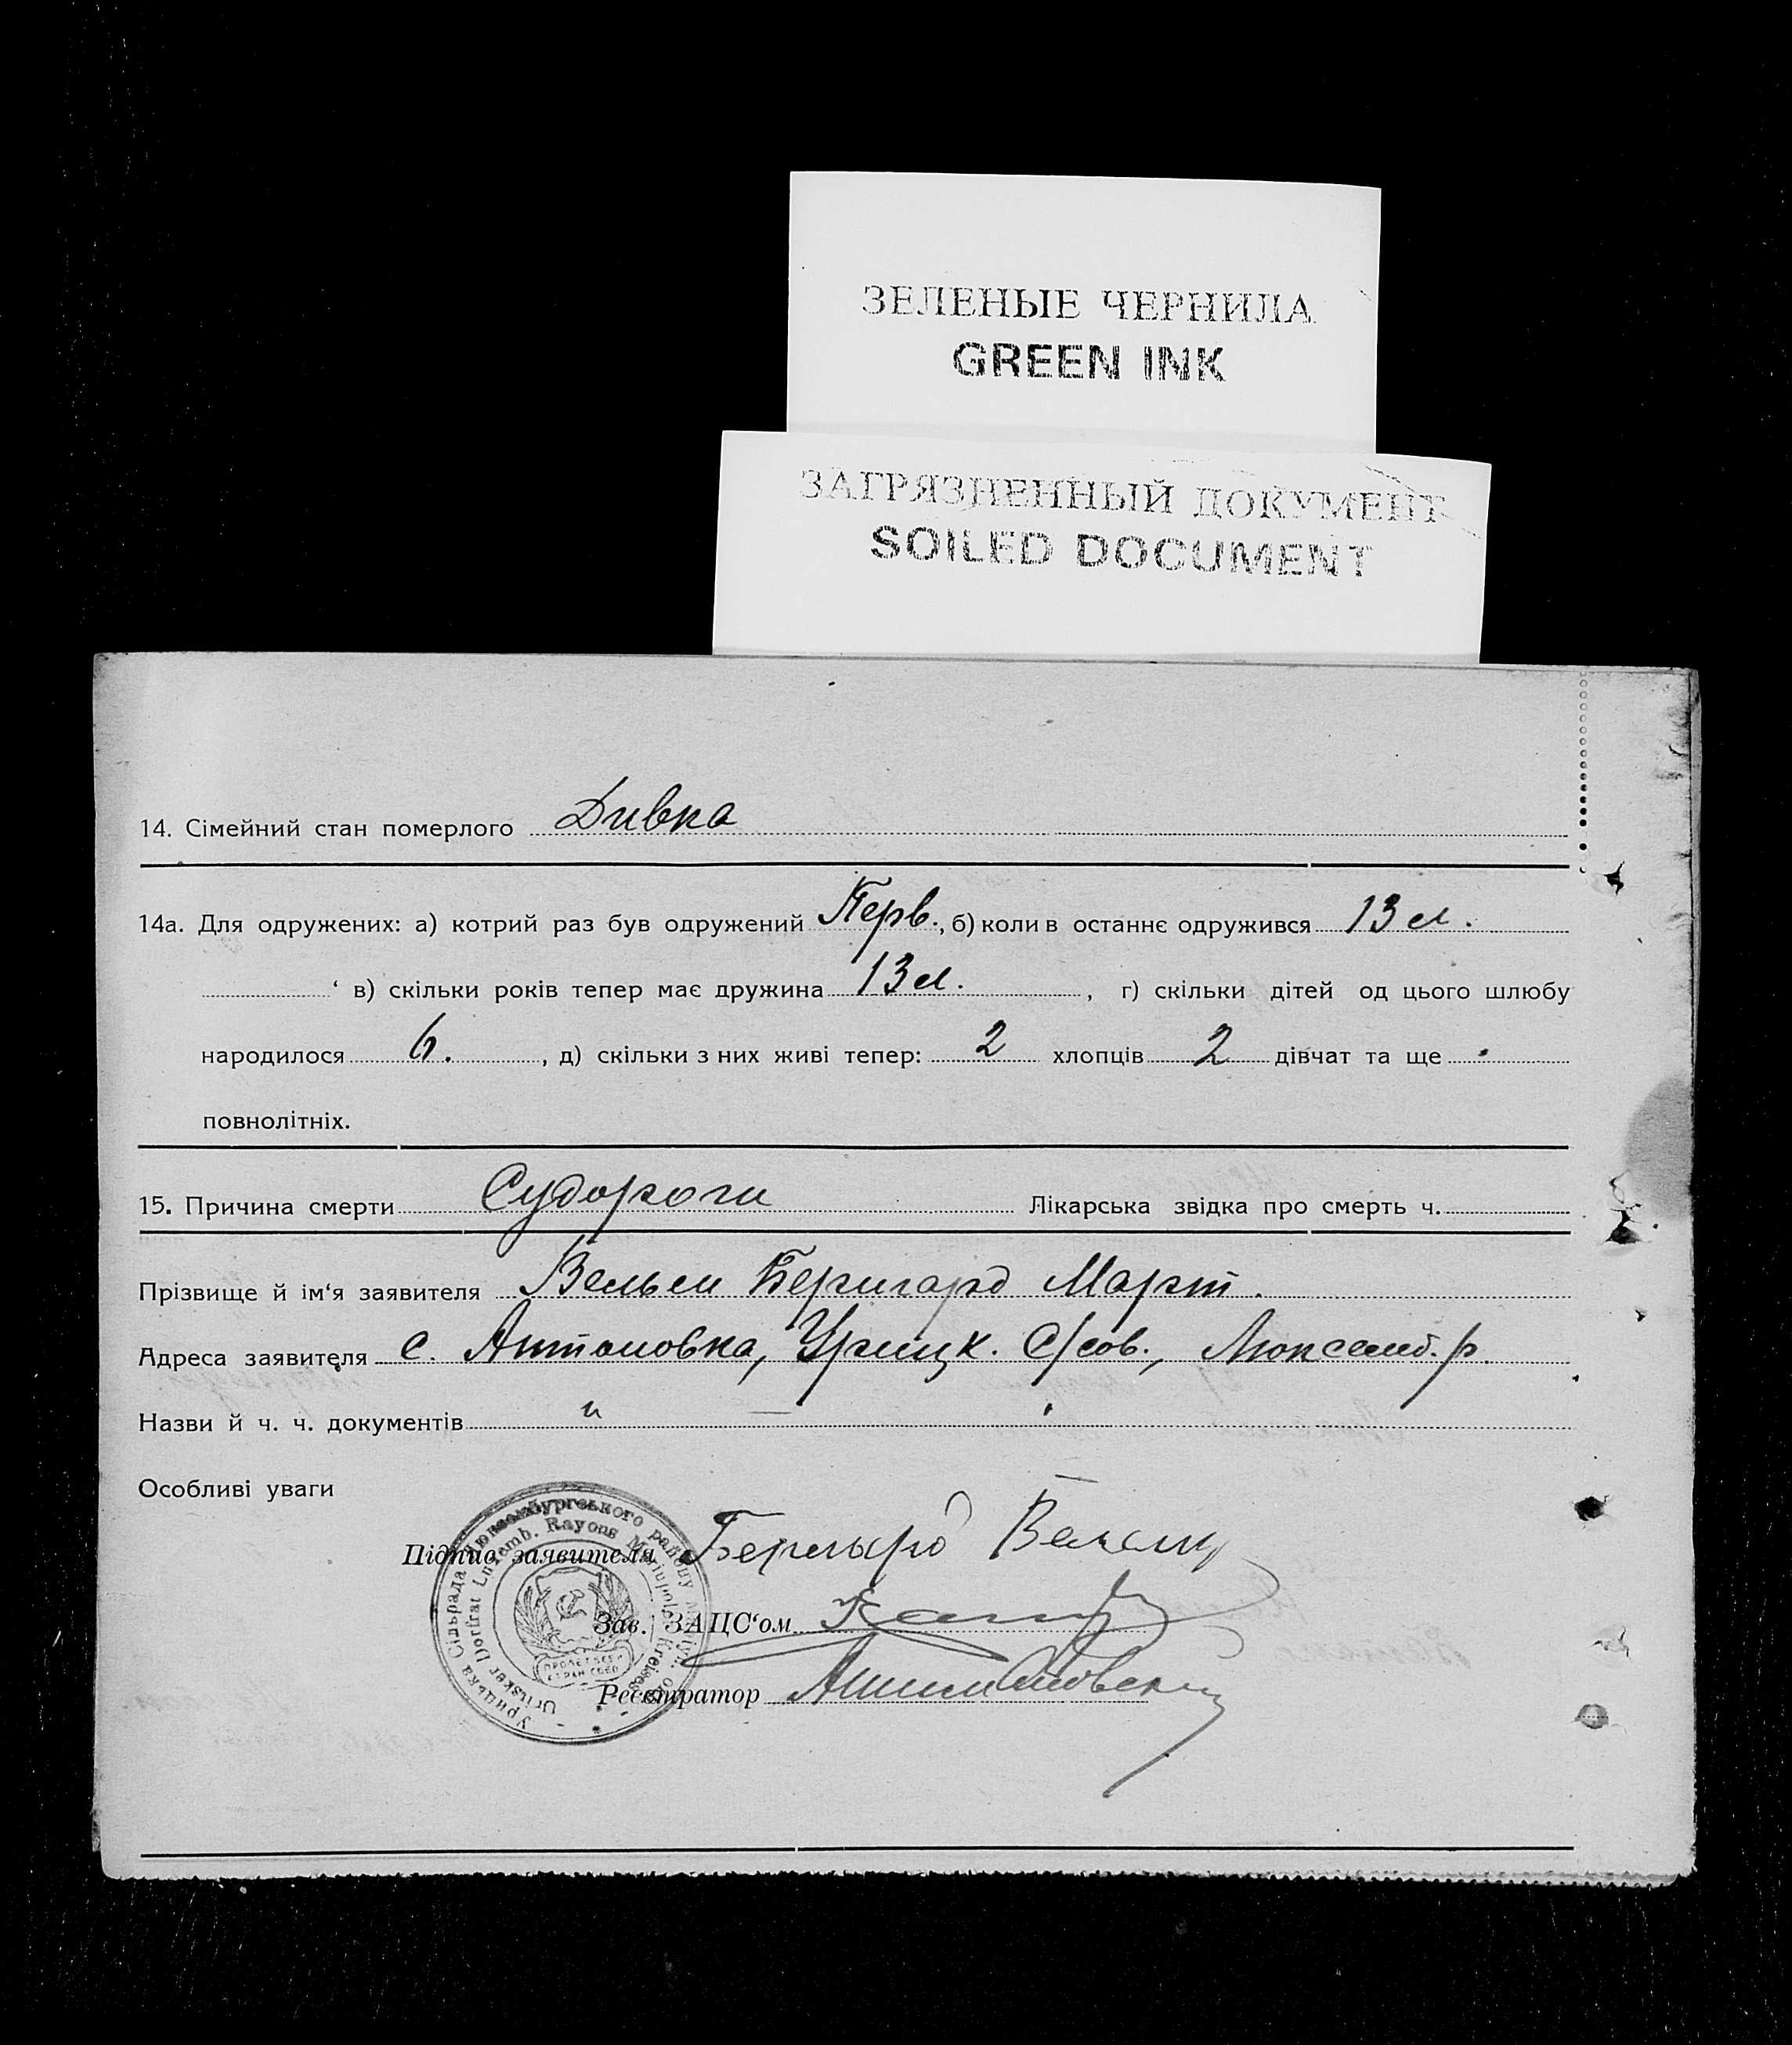 ЗЕЛЕНЫЕ ЧЕРНИЛА
GREEN INK
ЗАГРЯЗНЕННЫЙ ДОКУМЕНТ
SOILED DOCUMENT
14. Сімейний стан померлого Дивка
14а. Для одружених: а) котрий раз був одружений Перв., б) коли в останнє одружився 13 л.
в) скільки років тепер має дружина 13 л. , г) скільки дітей од цього шлюбу
народилося 6. , д) скільки з них живі тепер: 2 хлопців 2 дівчат та ще
повнолітніх.
15. Причина смерти Судороги Лікарська звідка про смерть ч.
Прізвище й ім‘я заявителя Вельш Бернгард Март.
Адреса заявителя с. Антоновка, Урицк. С/сов., Люксемб. р.
Назви й ч. ч. документів " — "
Особливі уваги
Підпис заявителя Бернгард
Зав. ЗАЦС‘ом
Реєстратор
Урицька Сільрада Люксембургського району Маріуп. окр.
Uritsker Dorfrat Luxemb. Rayons Mariupoler Kreises